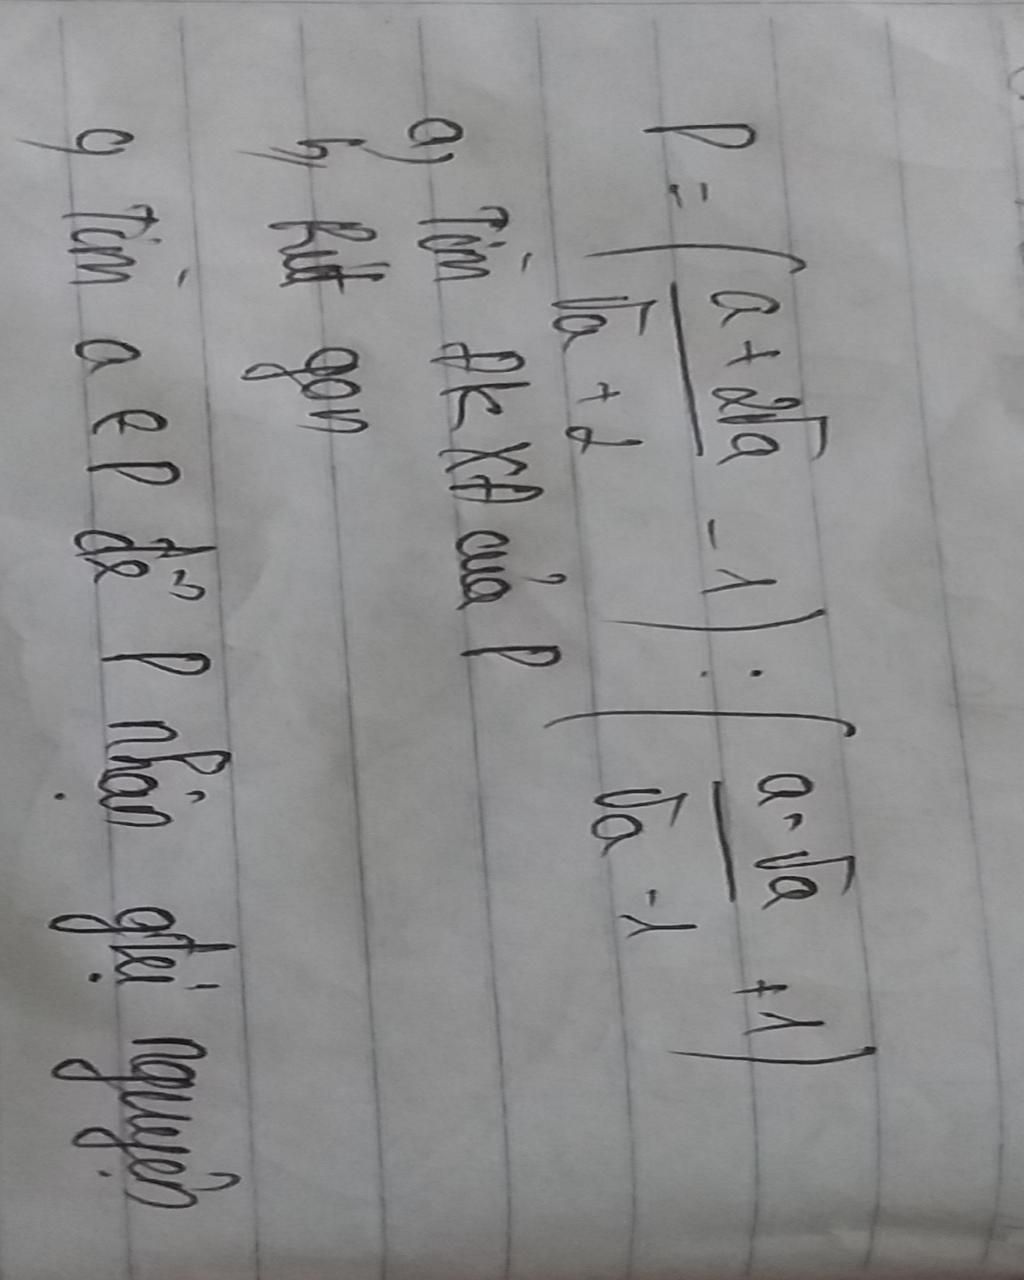 P = ( a + 2√a / √a + 2 - 1 ) : ( a - √a / √a - 1 + 1 )
a, Tìm ĐKXĐ của P
b, Rút gọn
c, Tìm a e P để P nhận gtrị nguyên